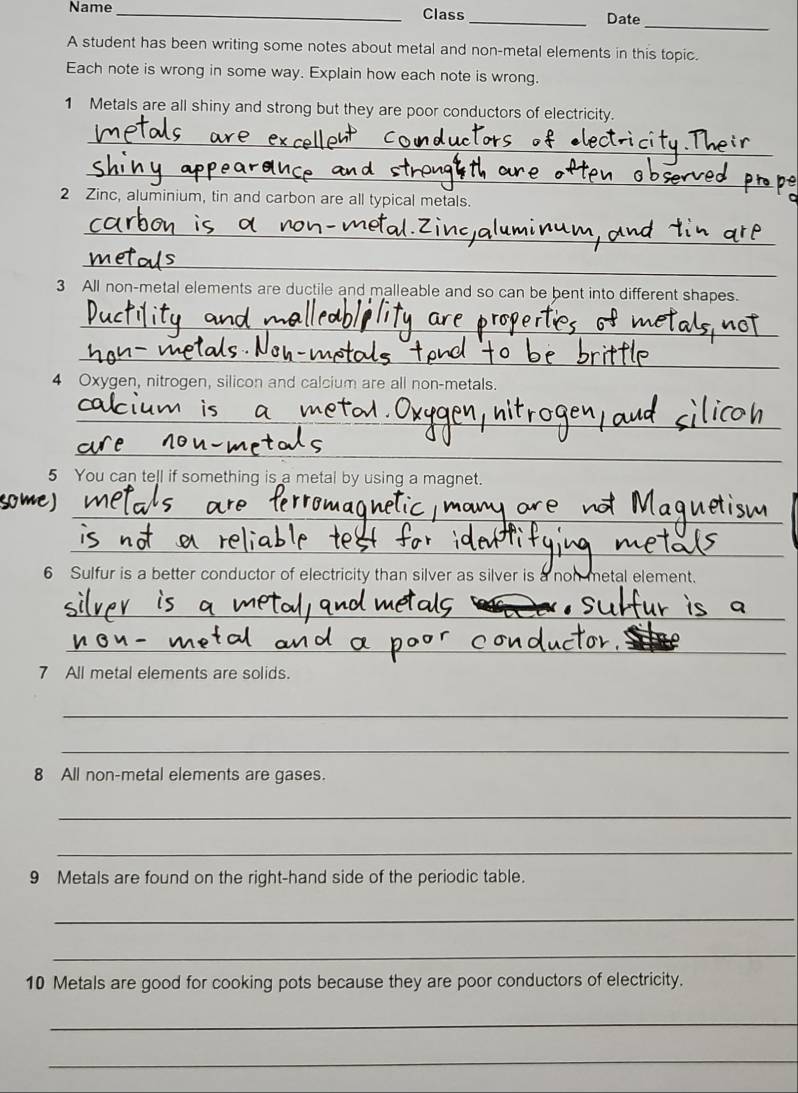 Name Class Date
A student has been writing some notes about metal and non-metal elements in this topic.
Each note is wrong in some way. Explain how each note is wrong.
1 Metals are all shiny and strong but they are poor conductors of electricity.
metals are excellent conductors of electricity. Their
shiny appearance and strength are often observed prope
2 Zinc, aluminium, tin and carbon are all typical metals.
carbon is a non-metal. Zinc, aluminum, and tin are
metals
3 All non-metal elements are ductile and malleable and so can be bent into different shapes.
Ductility and malleability are properties of metals, not
non-metals. Non-metals tend to be brittle
4 Oxygen, nitrogen, silicon and calcium are all non-metals.
calcium is a metal. Oxygen, nitrogen, and silicon
are non-metals
5 You can tell if something is a metal by using a magnet.
some) metals are ferromagnetic, many are not Magnetism
is not a reliable test for identifying metals
6 Sulfur is a better conductor of electricity than silver as silver is a non-metal element.
silver is a metal, and metals . sulfur is a
non-metal and a poor conductor.
7 All metal elements are solids.
8 All non-metal elements are gases.
9 Metals are found on the right-hand side of the periodic table.
10 Metals are good for cooking pots because they are poor conductors of electricity.